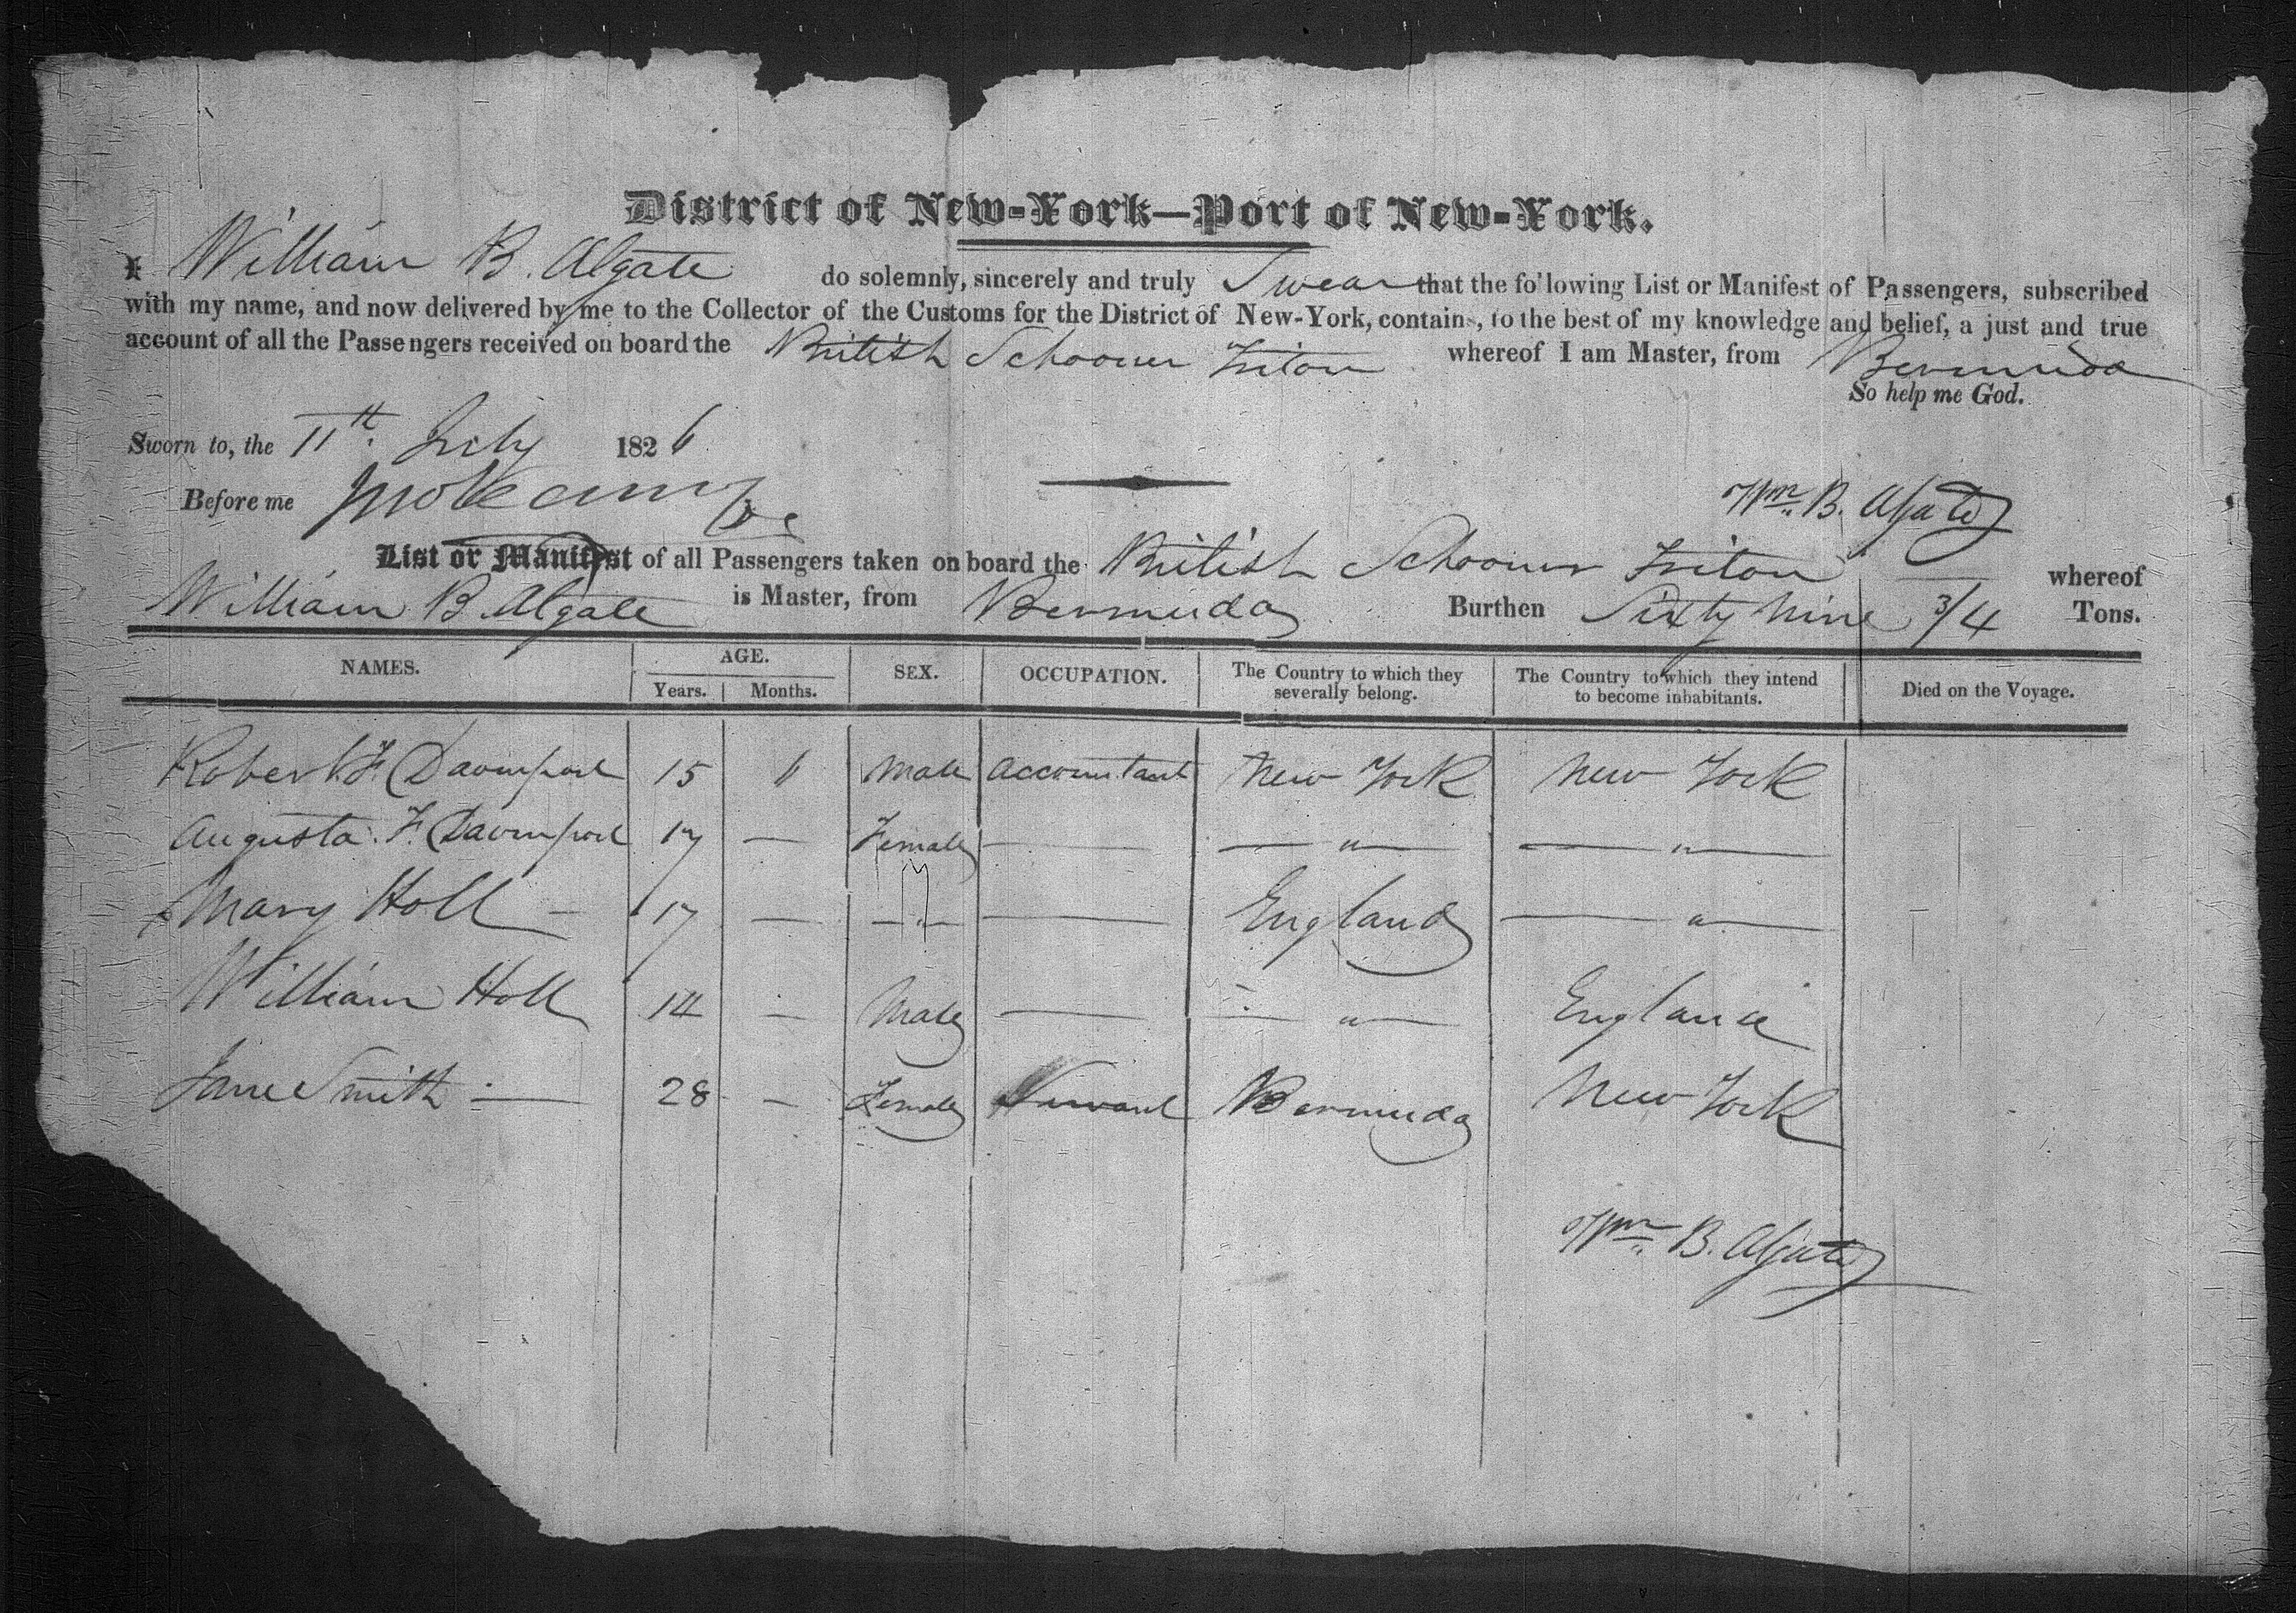 District of New-York—Port of New-York.
I William B. Algate do solemnly, sincerely and truly Swear that the following List or Manifest of Passengers, subscribed
with my name, and now delivered by me to the Collector of the Customs for the District of New-York, contains, to the best of my knowledge and belief, a just and true
account of all the Passengers received on board the British Schooner Triton whereof I am Master, from Bermuda
So help me God.
Sworn to, the 11th. July 1826
Before me
Wm. B. Algate
List or Manifest of all Passengers taken on board the British Schooner Triton whereof
William B. Algate is Master, from Bermuda Burthen Sixty Nine 3/4 Tons.
NAMES. AGE. Years. Months. SEX. OCCUPATION. The Country to which they severally belong. The Country to which they intend to become inhabitants. Died on the Voyage.
Robert. F. Davenport 15 6 Male Accountant New York New York
Augusta. F. Davenport 17 — Female — — " — — " —
Mary Holl — 17 — — " — — England — " —
William Holl 14 — Male — — " — England
Jane Smith — 28 — Female Servant Bermuda New York
Wm. B. Algate